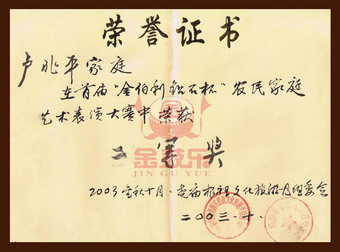 荣誉证书
卢兆平家庭
在首届“金伯利钻石杯”农民家庭
艺术表演大赛中荣获
二等奖
金钰乐
JIN GU YUE
2003金秋十月·
文化旅游月组委会
二00三·十·